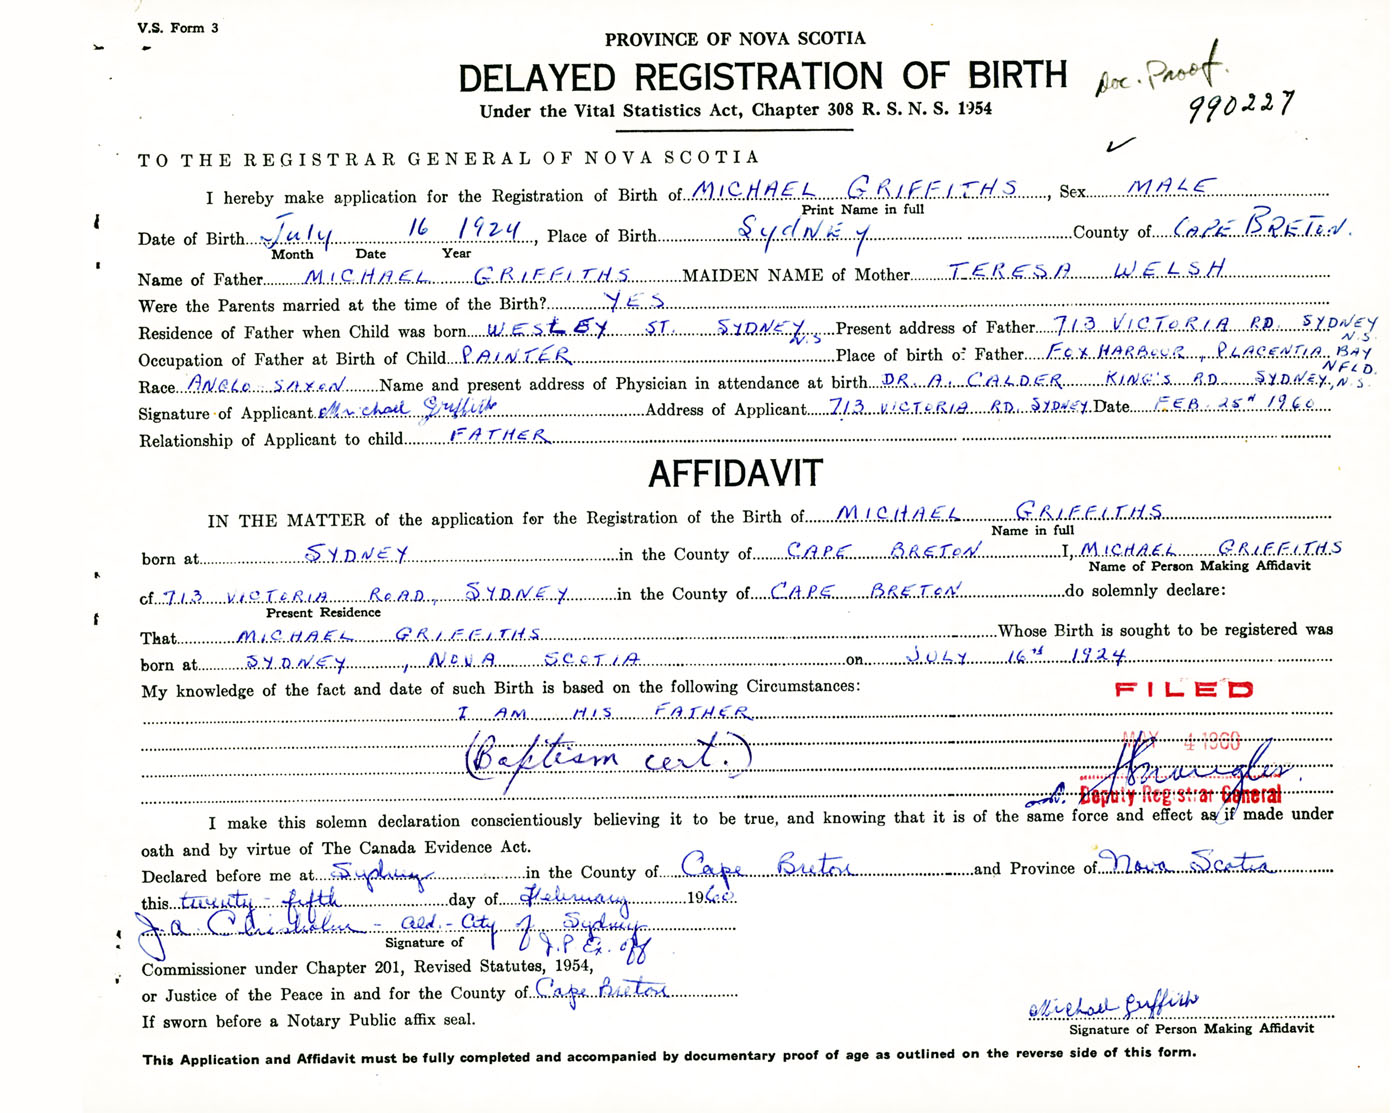 V.S. Form 3
PROVINCE OF NOVA SCOTIA
DELAYED REGISTRATION OF BIRTH
Doc. Proof.
Under the Vital Statistics Act, Chapter 308 R. S. N. S. 1954
990227
TO THE REGISTRAR GENERAL OF NOVA SCOTIA
I hereby make application for the Registration of Birth of MICHAEL GRIFFITHS, Sex MALE
Print Name in full
Date of Birth July 16 1924, Place of Birth Sydney County of CAPE BRETON.
Month Date Year
Name of Father MICHAEL GRIFFITHS MAIDEN NAME of Mother TERESA WELSH
Were the Parents married at the time of the Birth? YES
Residence of Father when Child was born WESLEY ST. SYDNEY N.S Present address of Father 713 VICTORIA RD. SYDNEY N.S.
Occupation of Father at Birth of Child PAINTER Place of birth of Father FOX HARBOUR, PLACENTIA BAY NFLD.
Race ANGLO SAXON Name and present address of Physician in attendance at birth DR. A. CALDER KING'S RD SYDNEY, N.S.
Signature of Applicant Michael Griffith Address of Applicant 713 VICTORIA RD. SYDNEY Date FEB. 25th 1960
Relationship of Applicant to child FATHER
AFFIDAVIT
IN THE MATTER of the application for the Registration of the Birth of MICHAEL GRIFFITHS
Name in full
born at SYDNEY in the County of CAPE BRETON I, MICHAEL GRIFFITHS
Name of Person Making Affidavit
of 713 VICTORIA ROAD, SYDNEY in the County of CAPE BRETON do solemnly declare:
Present Residence
That MICHAEL GRIFFITHS Whose Birth is sought to be registered was
born at SYDNEY, NOVA SCOTIA on JULY 16th 1924
My knowledge of the fact and date of such Birth is based on the following Circumstances:
FILED
I AM HIS FATHER
MAY 4 1960
(Baptism cert.)
Deputy Registrar General
I make this solemn declaration conscientiously believing it to be true, and knowing that it is of the same force and effect as if made under
oath and by virtue of The Canada Evidence Act.
Declared before me at Sydney in the County of Cape Breton and Province of Nova Scotia
this twenty-fifth day of February 1960.
J.A. Chisholm - Ald.- City of Sydney
Signature of J.P Ex. off
Commissioner under Chapter 201, Revised Statutes, 1954,
or Justice of the Peace in and for the County of Cape Breton
Michael Griffith
If sworn before a Notary Public affix seal.
Signature of Person Making Affidavit
This Application and Affidavit must be fully completed and accompanied by documentary proof of age as outlined on the reverse side of this form.